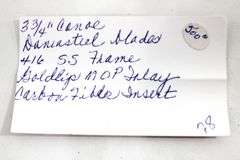 3 3/4" Canoe
Damasteel blades
416 SS Frame
Goldlip MOP Inlay
Carbon Fibre Insert
28